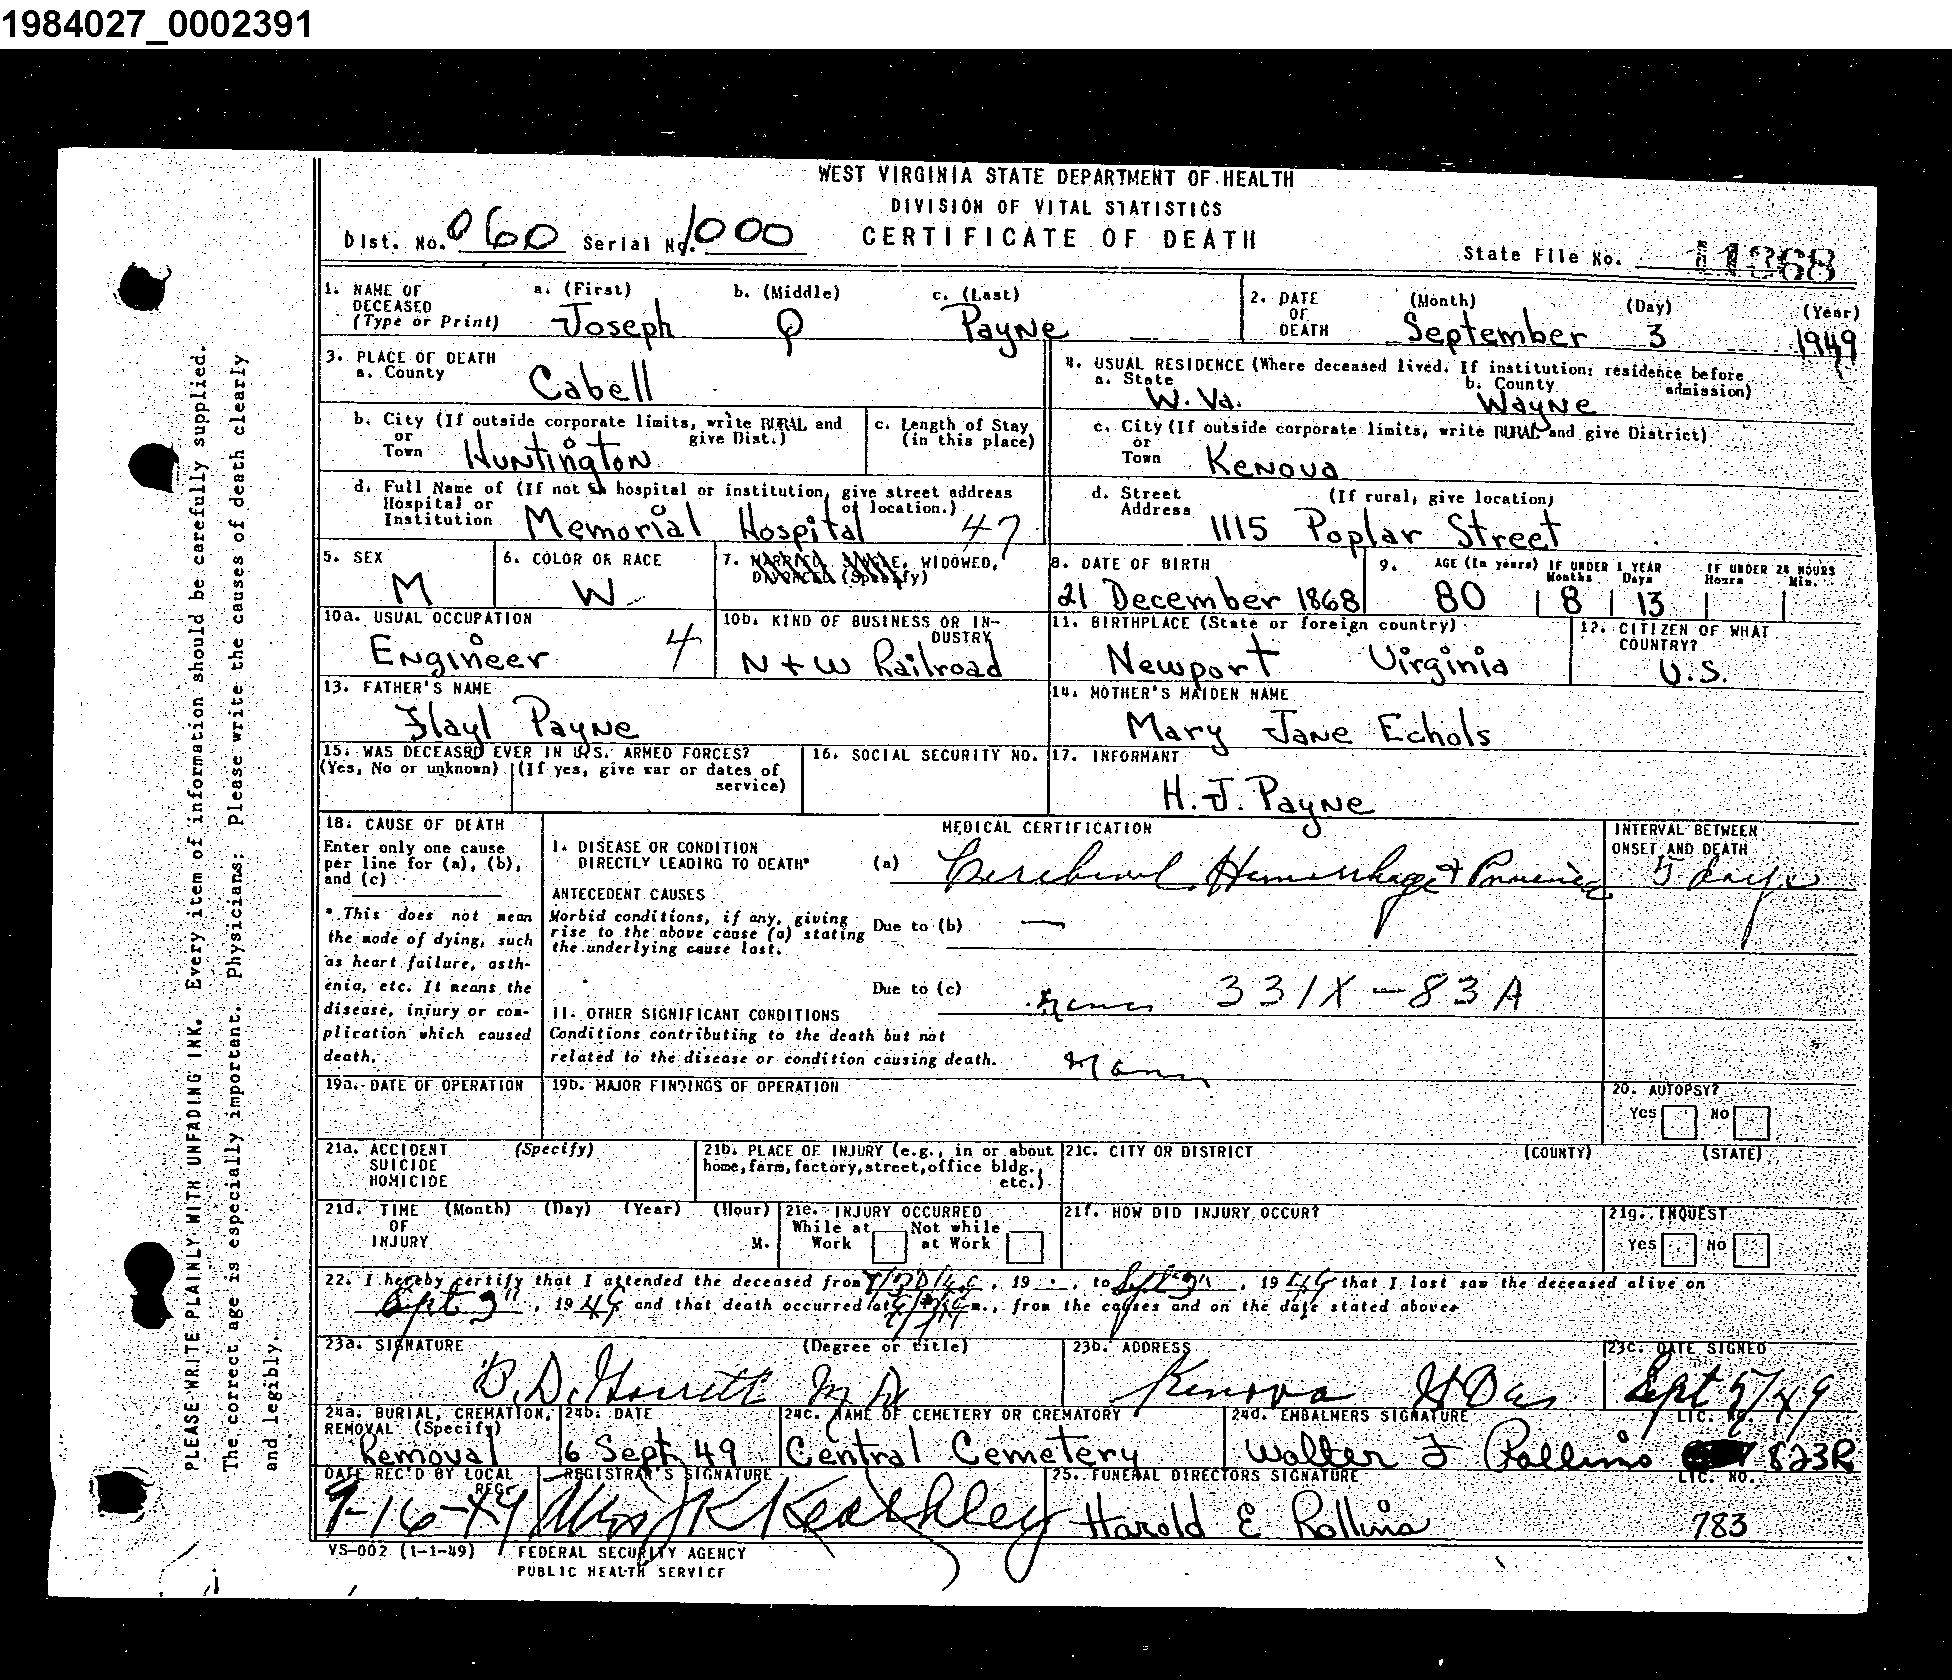 1984027_0002391
WEST VIRGINIA STATE DEPARTMENT OF HEALTH
DIVISION OF VITAL STATISTICS
CERTIFICATE OF DEATH
Dist. No. 060 Serial No. 1000
State File No. 11368
1. NAME OF DECEASED (Type or Print) a. (First) Joseph b. (Middle) Q c. (Last) Payne
2. DATE OF DEATH (Month) September (Day) 3 (Year) 1949
3. PLACE OF DEATH
a. County Cabell
4. USUAL RESIDENCE (Where deceased lived. If institution: residence before admission)
a. State W. Va. b. County Wayne
b. City (If outside corporate limits, write RURAL and give Dist.) or Town Huntington
c. Length of Stay (in this place)
c. City (If outside corporate limits, write RURAL and give District) or Town Kenova
d. Full Name of (If not in hospital or institution, give street address or location.) Hospital or Institution Memorial Hospital 47
d. Street Address (If rural, give location) 1115 Poplar Street
5. SEX M
6. COLOR OR RACE W
7. MARRIED, SINGLE, WIDOWED, DIVORCED (Specify)
8. DATE OF BIRTH 21 December 1868
9. AGE (In years) 80 IF UNDER 1 YEAR Months 8 Days 13 IF UNDER 24 HOURS Hours Min.
10a. USUAL OCCUPATION Engineer 4
10b. KIND OF BUSINESS OR INDUSTRY N + W Railroad
11. BIRTHPLACE (State or foreign country) Newport Virginia
12. CITIZEN OF WHAT COUNTRY? U.S.
13. FATHER'S NAME Flayl Payne
14. MOTHER'S MAIDEN NAME Mary Jane Echols
15. WAS DECEASED EVER IN U.S. ARMED FORCES? (Yes, No or unknown) (If yes, give war or dates of service)
16. SOCIAL SECURITY NO.
17. INFORMANT H. J. Payne
18. CAUSE OF DEATH
Enter only one cause per line for (a), (b), and (c)
* This does not mean the mode of dying, such as heart failure, asthenia, etc. It means the disease, injury or complication which caused death.
MEDICAL CERTIFICATION
INTERVAL BETWEEN ONSET AND DEATH
I. DISEASE OR CONDITION DIRECTLY LEADING TO DEATH* (a) Cerebral Hemorrhage + 5 days
ANTECEDENT CAUSES
Morbid conditions, if any, giving rise to the above cause (a) stating the underlying cause last.
Due to (b) —
Due to (c) 331X - 83A
II. OTHER SIGNIFICANT CONDITIONS
Conditions contributing to the death but not related to the disease or condition causing death.
19a. DATE OF OPERATION
19b. MAJOR FINDINGS OF OPERATION
20. AUTOPSY? Yes No
21a. ACCIDENT SUICIDE HOMICIDE (Specify)
21b. PLACE OF INJURY (e.g., in or about home, farm, factory, street, office bldg., etc.)
21c. CITY OR DISTRICT (COUNTY) (STATE)
21d. TIME OF INJURY (Month) (Day) (Year) (Hour) M.
21e. INJURY OCCURRED While at Work Not while at Work
21f. HOW DID INJURY OCCUR?
21g. INQUEST Yes No
22. I hereby certify that I attended the deceased from , 19 , to Sept , 1949 that I last saw the deceased alive on
Sept 3", 1949 and that death occurred at m., from the causes and on the date stated above.
23a. SIGNATURE (Degree or title) B. D. Garrett M D
23b. ADDRESS Kenova W Va
23c. DATE SIGNED Sept 5/49
24a. BURIAL, CREMATION, REMOVAL (Specify) Removal
24b. DATE 6 Sept 49
24c. NAME OF CEMETERY OR CREMATORY Central Cemetery
24d. EMBALMERS SIGNATURE Walter F Rollins LIC. NO. 823R
DATE REC'D BY LOCAL REG. 9-16-49
REGISTRAR'S SIGNATURE Keathley
25. FUNERAL DIRECTORS SIGNATURE Harold E Rollins LIC. NO. 783
VS-002 (1-1-49) FEDERAL SECURITY AGENCY
PUBLIC HEALTH SERVICE
PLEASE WRITE PLAINLY WITH UNFADING INK. Every item of information should be carefully supplied.
The correct age is especially important. Physicians: Please write the causes of death clearly
and legibly.